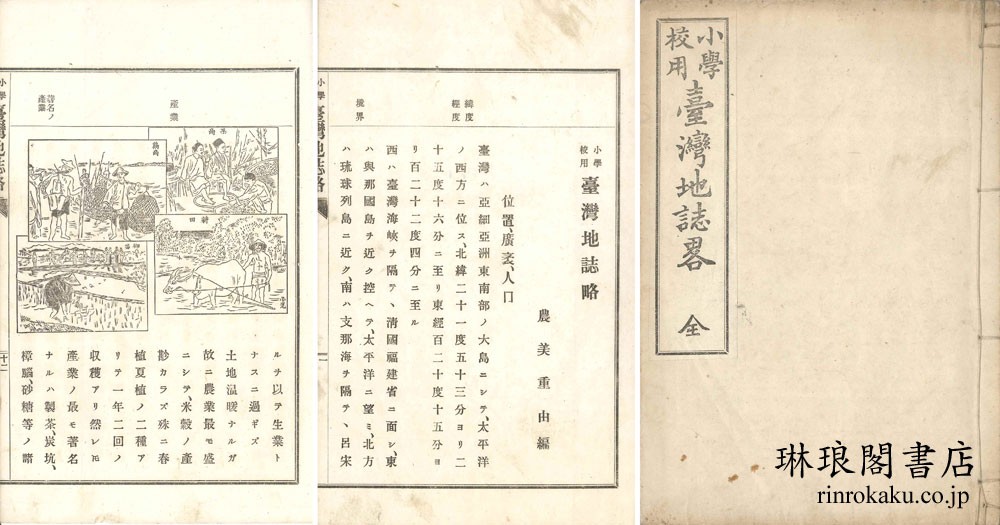 小學校用
臺灣地誌畧
全
琳琅閣書店
rinrokaku.co.jp
緯度
經度
疆界
小學校用
臺灣地誌略
農美重由編
位置、廣袤、人口
臺灣ハ亞細亞洲東南部ノ大島ニシテ、太平洋
ノ西方ニ位ス、北緯二十一度五十三分ヨリ二
十五度十六分ニ至リ東經百二十度十五分ヨ
リ百二十二度四分ニ至ル
西ハ臺灣海峽ヲ隔テヽ清國福建省ニ面シ、東
ハ與那國島ヲ近ク控ヘテ、太平洋ニ望ミ、北方
ハ琉球列島ニ近ク、南ハ支那海ヲ隔テヽ呂宋
小學
臺灣地誌略
産業
著名ノ
産業
耕田
ルヲ以テ生業ト
ナスニ過ギズ
土地温暖ナルガ
故ニ農業最モ盛
ニシテ、米穀ノ産
尠カラズ殊ニ春
植夏植ノ二種ア
リテ一年二回ノ
収穫アリ然レ𪜈
産業ノ最モ著名
ナルハ製茶、炭坑、
樟腦、砂糖等ノ諸
十二